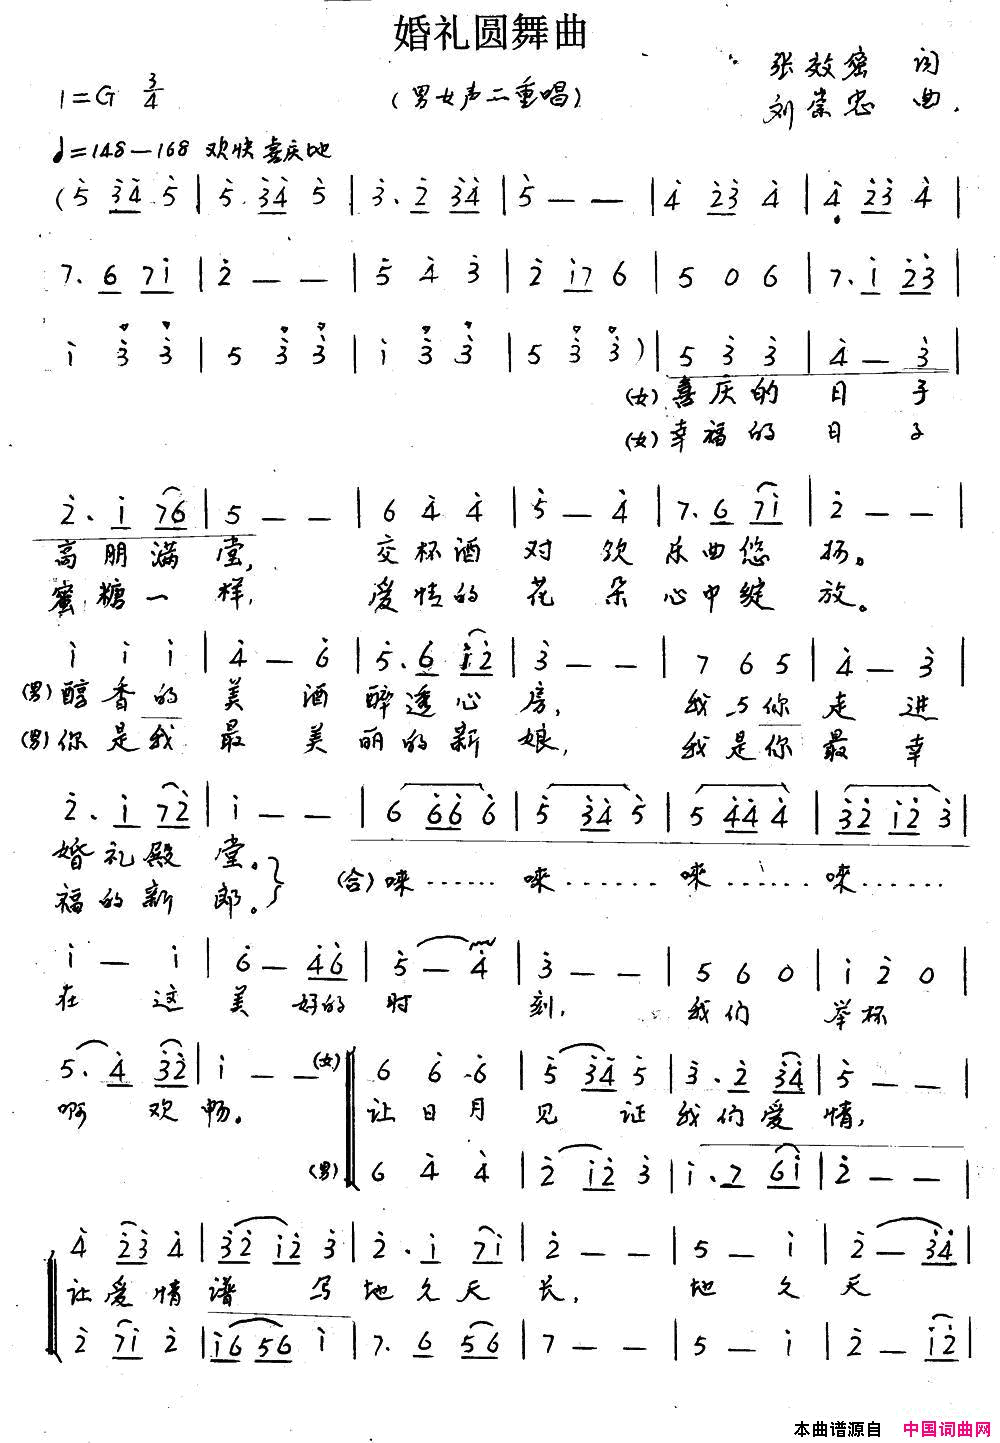 婚礼圆舞曲
张效密 词
1=G 3/4 (男女声二重唱)
刘崇忠 曲.
♩=148—168 欢快喜庆地
(5 34 5 | 5 34 5 | 3. 2 34 | 5 — — | 4 23 4 | 4 23 4 |
7. 6 71 | 2 — — | 5 4 3 | 2 17 6 | 5 0 6 | 7. 1 23 |
1 3 3 | 5 3 3 | 1 3 3 | 5 3 3 ) | 5 3 3 | 4 — 3 |
(女) 喜庆的 日 子
(女) 幸福的 日 子
2. 1 76 | 5 — — | 6 4 4 | 5 — 4 | 7. 6 71 | 2 — — |
高朋满 堂, 交杯酒 对 饮 乐曲悠 扬。
蜜糖一 样, 爱情的 花 朵 心中绽 放。
1 1 1 | 4 — 6 | 5. 6 12 | 3 — — | 7 6 5 | 4 — 3 |
(男) 醇香的 美 酒 醉透心 房, 我与你 走 进
(男) 你是我 最 美 丽的新 娘, 我是你 最 幸
2. 1 72 | 1 — — | 6 66 6 | 5 34 5 | 5 44 4 | 32 12 3 |
婚礼殿 堂。
福的新 郎。} (合) 唻…… 唻…… 唻…… 唻……
1 — 1 | 6 — 46 | 5 — 4 | 3 — — | 5 6 0 | 1 2 0 |
在 这 美 好的 时 刻, 我们 举杯
5. 4 32 | 1 — — | (女) 6 6 6 | 5 34 5 | 3. 2 34 | 5 — — |
啊 欢 畅。 让日月 见 证 我们爱 情,
(男) 6 4 4 | 2 12 3 | 1. 7 61 | 2 — — |
4 23 4 | 32 12 3 | 2. 1 71 | 2 — — | 5 — 1 | 2 — 34 |
让爱情 谱 写 地久天 长, 地 久 天
2 71 2 | 16 56 1 | 7. 6 56 | 7 — — | 5 — 1 | 2 — 12 |
本曲谱源自 中国词曲网